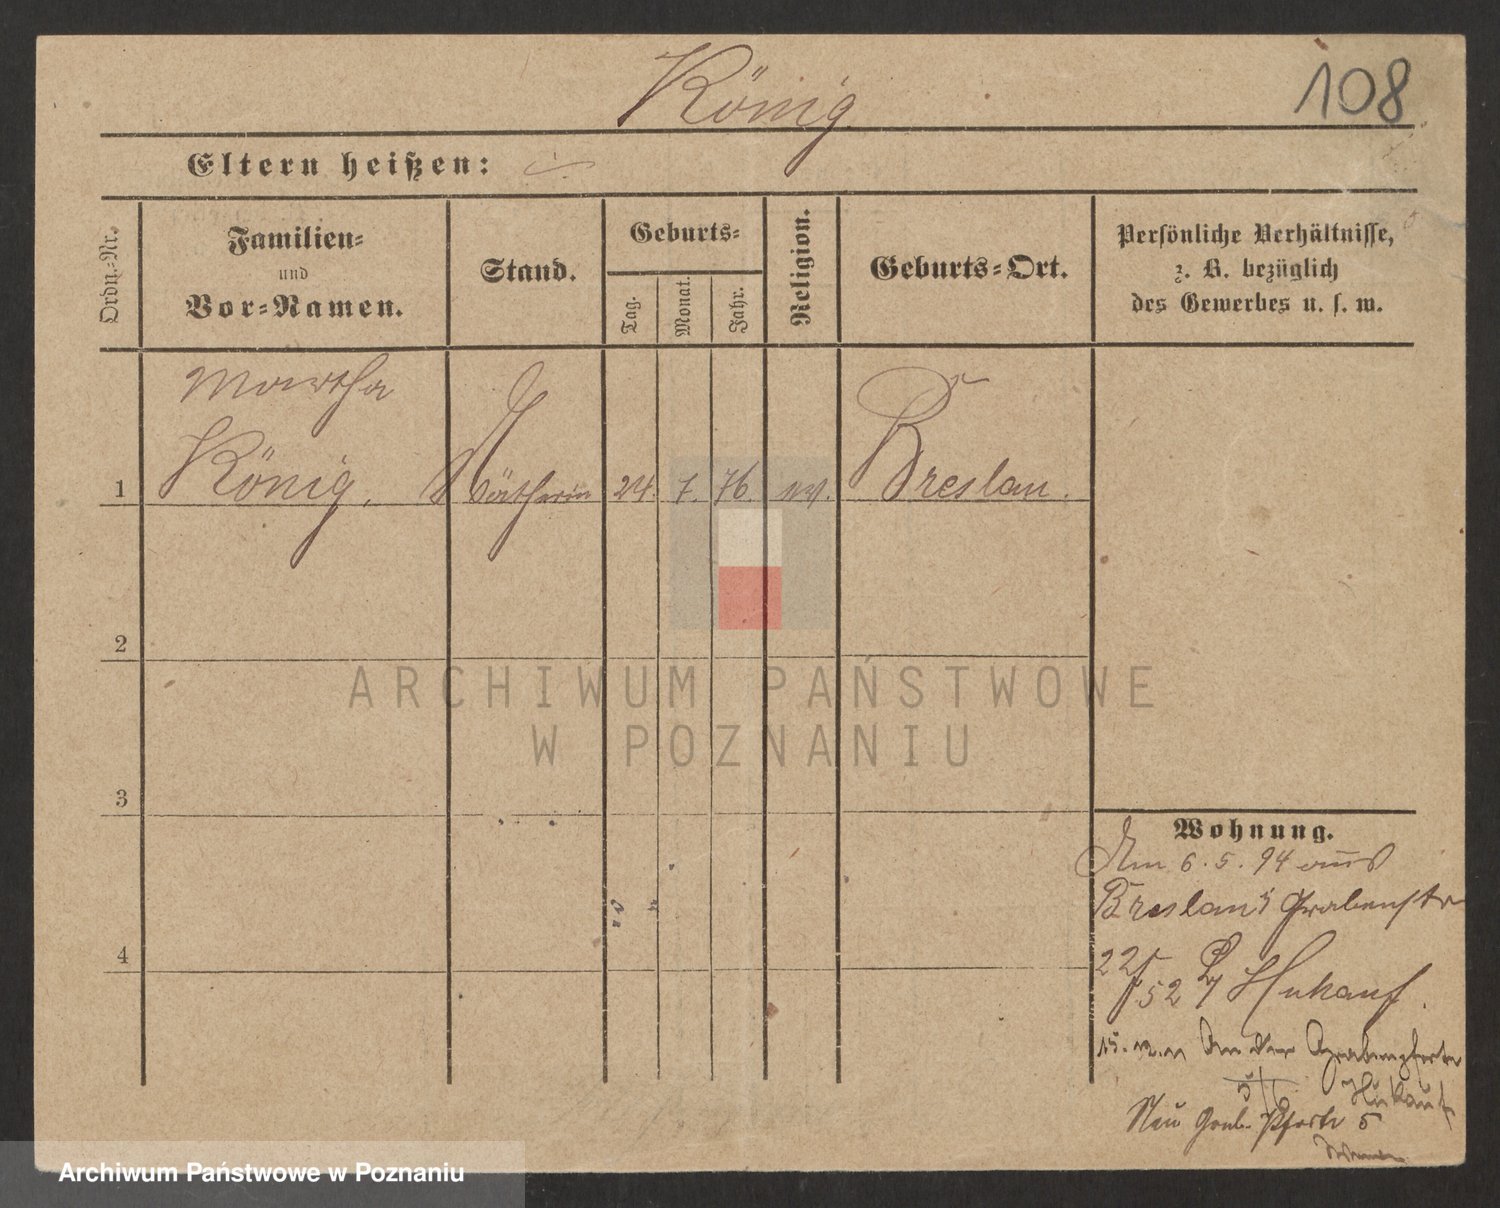 König
108
Eltern heißen:
Ordn.-Nr.
Familien-
und
Vor-Namen.
Stand.
Geburts-
Tag.
Monat.
Jahr.
Religion.
Geburts-Ort.
Persönliche Verhältnisse,
z. B. bezüglich
des Gewerbes u. s. w.
Martha
1 König. Nätherin 24. 7. 76 ev. Breslau.
2
ARCHIWUM PAŃSTWOWE
W POZNANIU
3
Wohnung.
Am 6.5.94 aus
Breslau Grabenstr
22/52 Hukauf.
An der Grabenpforte
5/6 Hukauf
Neu Grab. Pforte 5
4
Archiwum Państwowe w Poznaniu